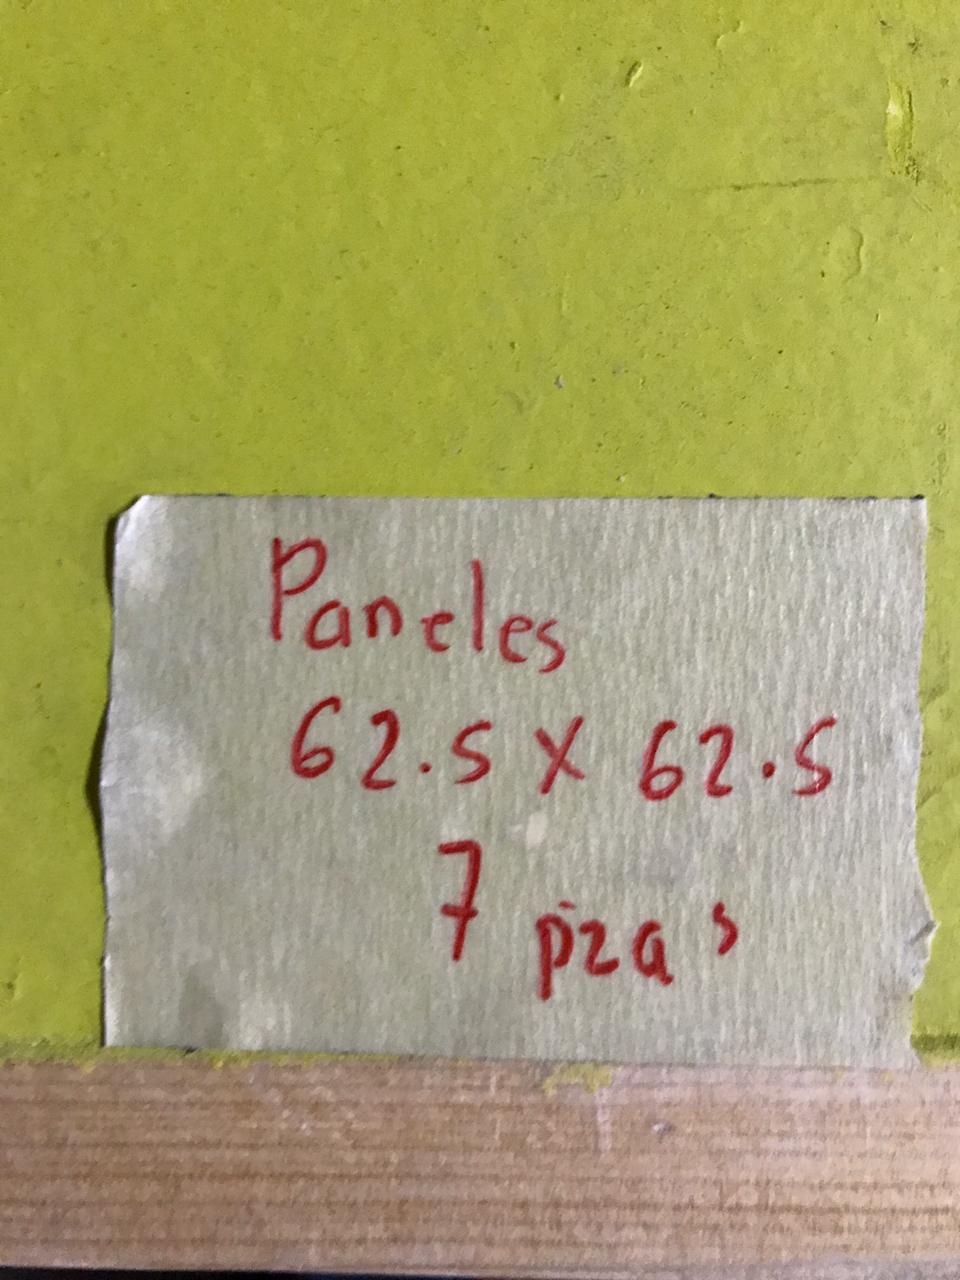 Paneles
62.5 x 62.5
7 pzas